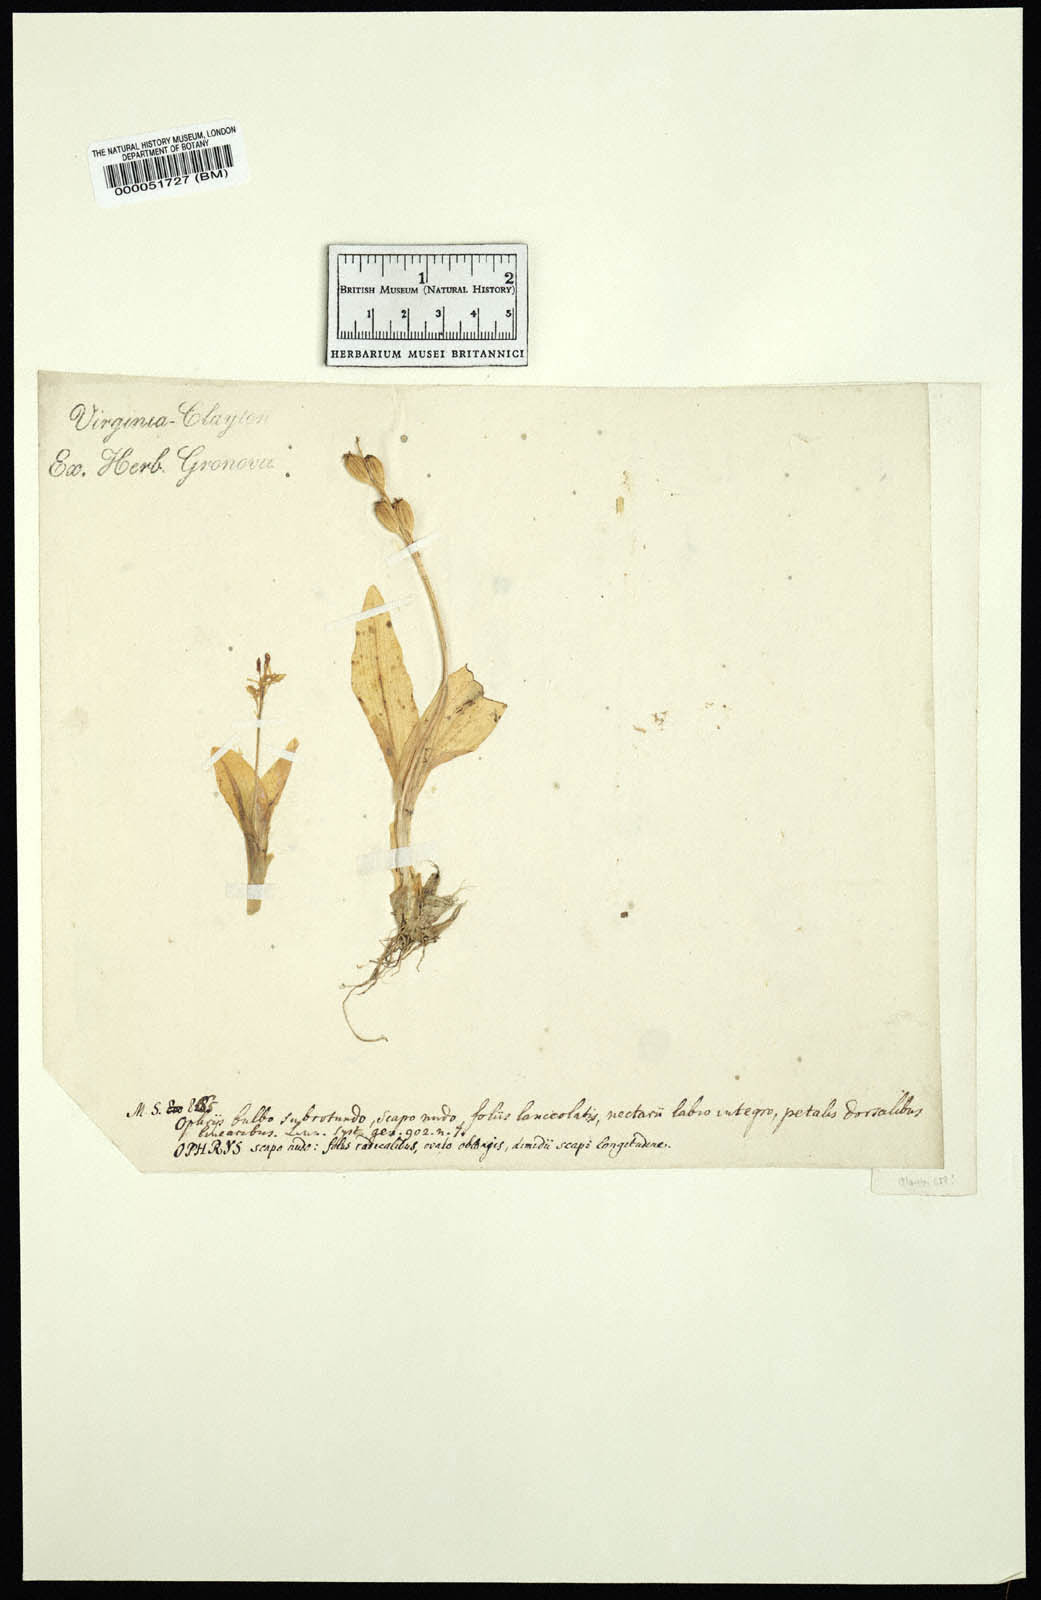 THE NATURAL HISTORY MUSEUM, LONDON
DEPARTMENT OF BOTANY
000051727 (BM)
1 2
BRITISH MUSEUM (NATURAL HISTORY)
1 2 3 4 5
HERBARIUM MUSEI BRITANNICI
Virginia-Clayton
Ex. Herb. Gronovii.
M. S.
Ophrys bulbo subrotundo, scapo nudo, foliis lanceolatis, nectarii labro integro, petalis dorsalibus
linearibus. Linn. Syst. gen. 902. n.
OPHRYS scapo nudo: foliis radicalibus, ovato oblongis, dimidii scapi longitudine.